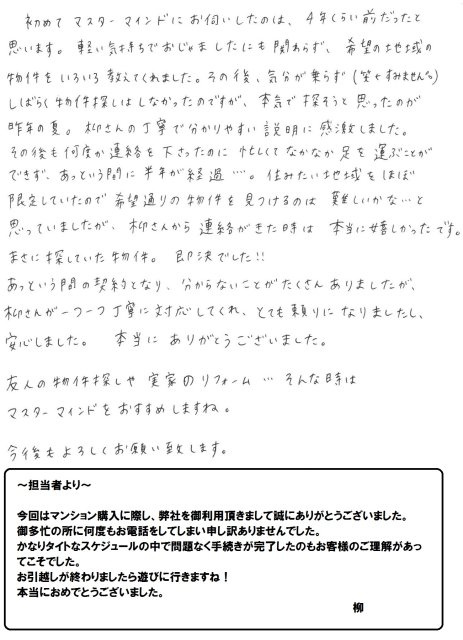 初めて マスターマインドにお伺いしたのは、4年くらい前だったと
思います。軽い気持ちでおじゃましたにも関わらず、希望の地域の
物件をいろいろ教えてくれました。その後、気分が乗らず(笑々すみません💦)
しばらく物件探しはしなかったのですが、本気で探そうと思ったのが
昨年の夏。柳さんの丁寧で分かりやすい説明に感激しました。
その後も何度か連絡を下さったのに 忙しくてなかなか足を運ぶことが
できず、あっという間に半年が経過…。住みたい地域をほぼ
限定していたので希望通りの物件を見つけるのは 難しいかな…と
思っていましたが、柳さんから連絡がきた時は 本当に嬉しかったです。
まさに探していた物件。即決でした!!
あっという間の契約となり、分からないことがたくさんありましたが、
柳さんが一つ一つ丁寧に対応してくれ、とても頼りになりましたし、
安心しました。 本当に ありがとうございました。
友人の物件探しや 実家のリフォーム… そんな時は
マスターマインドをおすすめしますね。
今後もよろしくお願い致します。
～担当者より～
今回はマンション購入に際し、弊社を御利用頂きまして誠にありがとうございました。
御多忙の所に何度もお電話をしてしまい申し訳ありませんでした。
かなりタイトなスケジュールの中で問題なく手続きが完了したのもお客様のご理解があっ
てこそでした。
お引越しが終わりましたら遊びに行きますね！
本当におめでとうございました。
柳